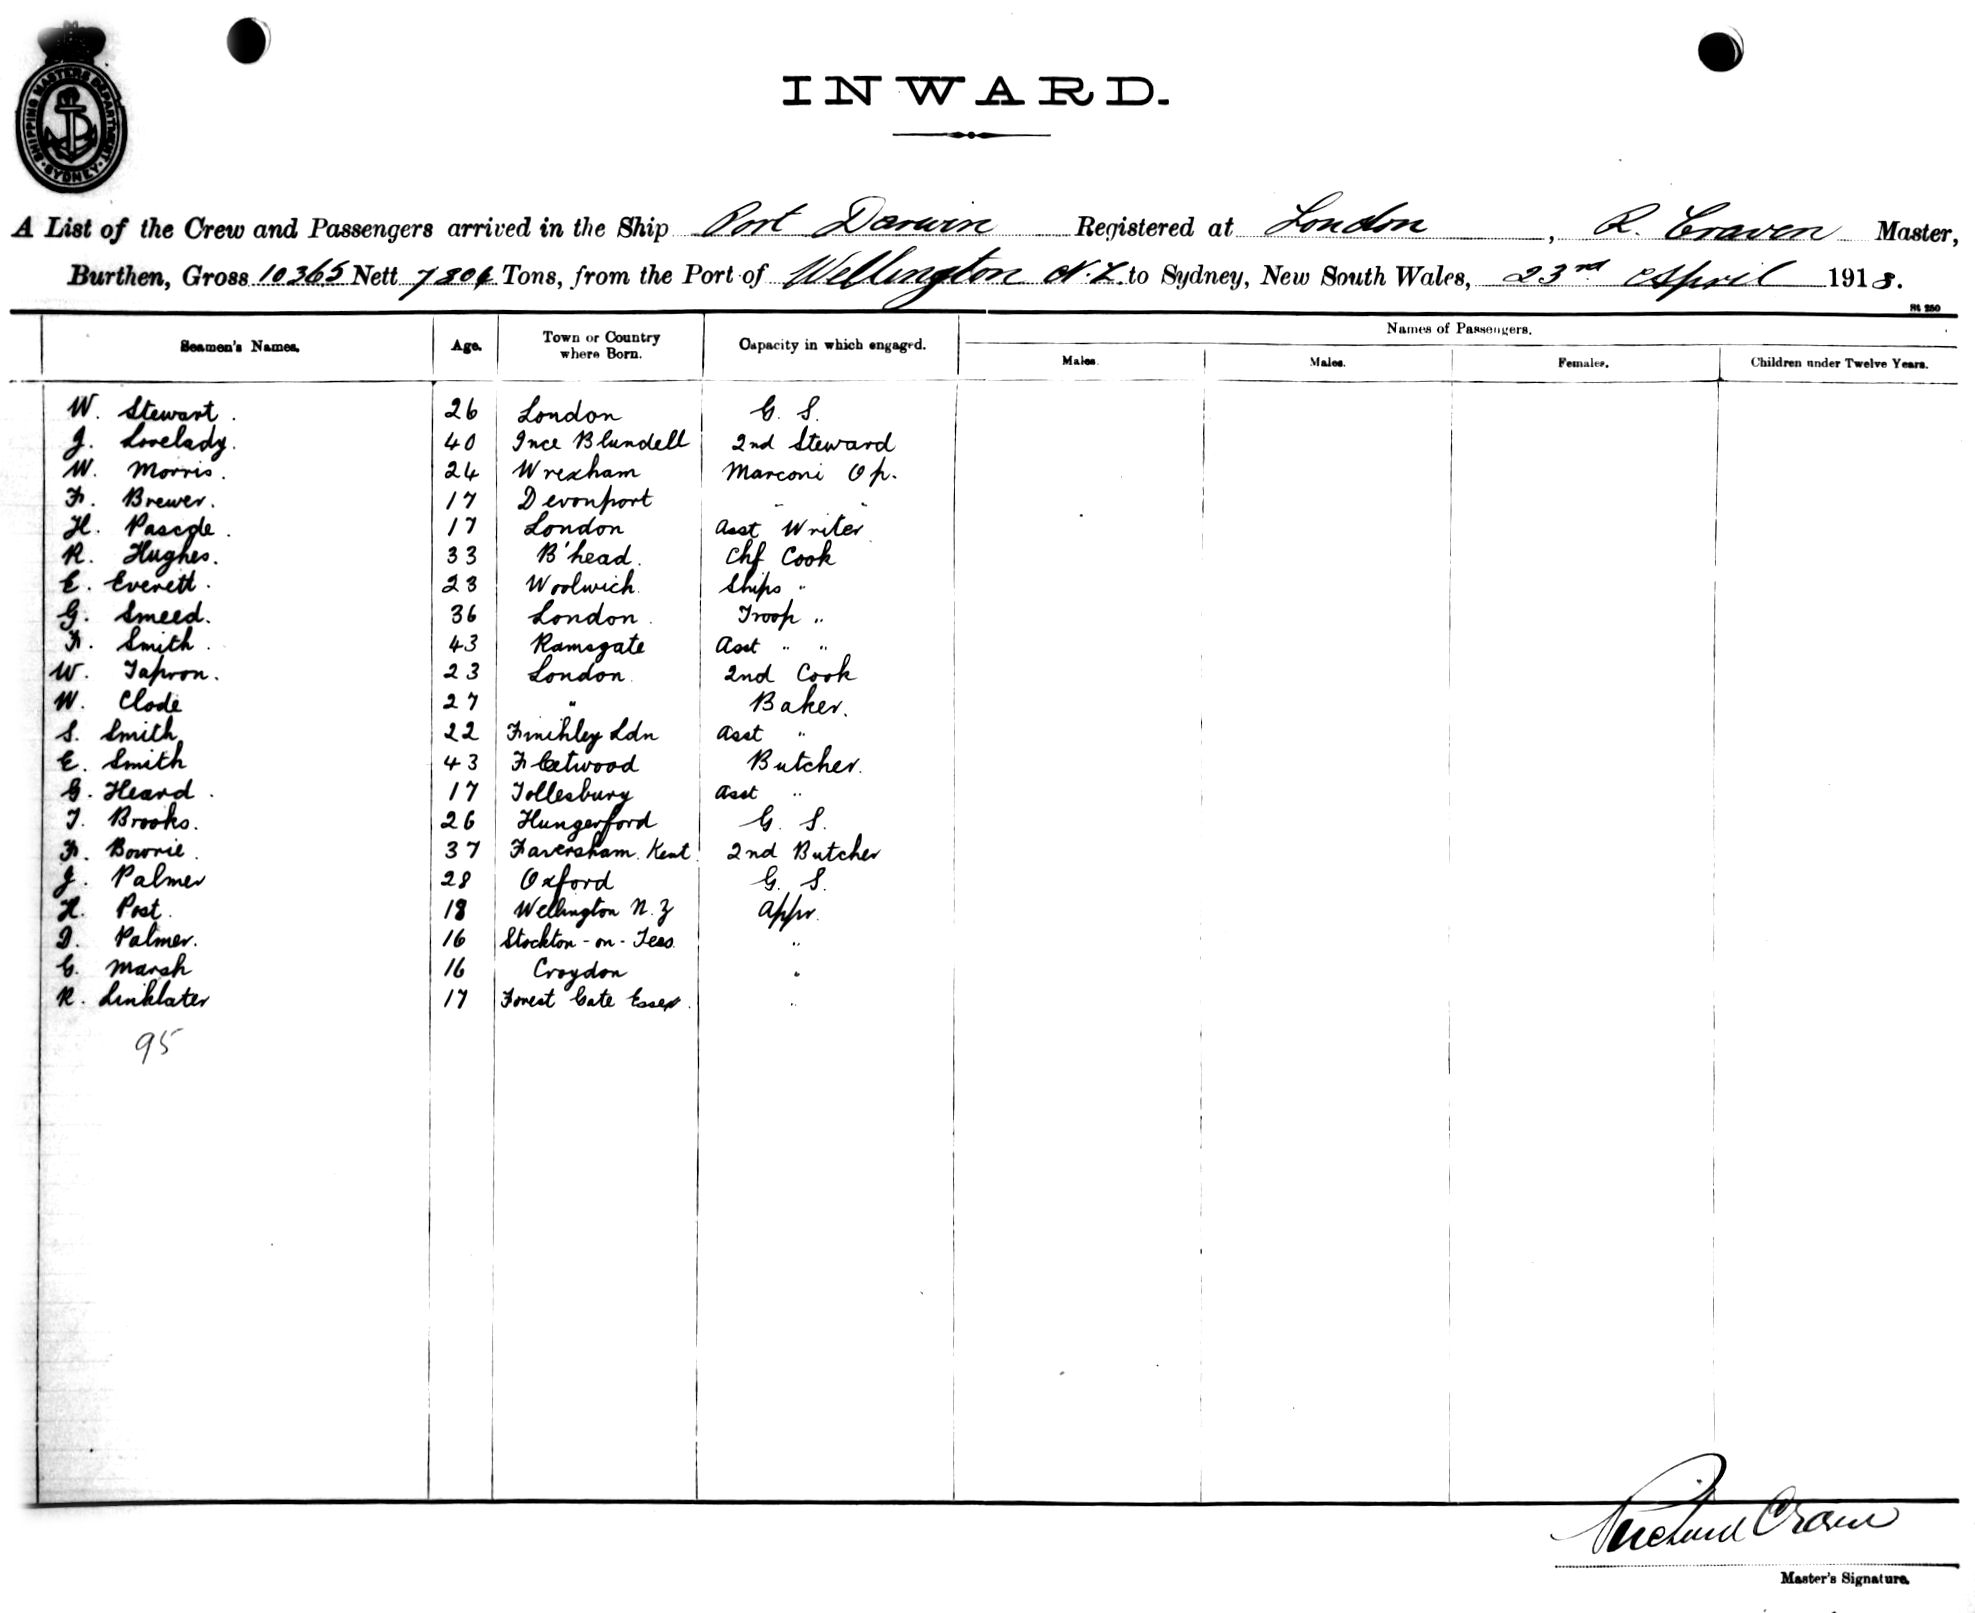 SHIPPING MASTERS DEPARTMENT
SYDNEY
INWARD.
A List of the Crew and Passengers arrived in the Ship Port Darwin Registered at London, R. Craven Master,
Burthen, Gross 10365 Nett Tons, from the Port of Wellington N.Z. to Sydney, New South Wales, 23rd April 1918.
St 250
Seamen's Names. Age. Town or Country where Born. Capacity in which engaged. Names of Passengers.
Males. Males. Females. Children under Twelve Years.
W. Stewart. 26 London G. S.
J. Lovelady. 40 Ince Blundell 2nd Steward
W. Morris. 24 Wrexham Marconi Op.
F. Brewer. 17 Devonport " "
H. Pascoe. 17 London Asst Writer
R. Hughes. 33 B'head. Chf Cook
E. Everett. 23 Woolwich. Ships "
G. Smeed. 36 London. Troop "
F. Smith. 43 Ramsgate Asst " "
W. Tapron. 23 London. 2nd Cook
W. Clode 27 " Baker.
S. Smith 22 Finchley Ldn Asst "
E. Smith 43 Fleetwood Butcher.
G. Heard. 17 Tollesbury Asst "
T. Brooks. 26 Hungerford G. S.
F. Bowrie. 37 Faversham. Kent. 2nd Butcher
J. Palmer 28 Oxford G. S.
H. Post. 18 Wellington N.Z Appr.
D. Palmer. 16 Stockton-on-Tees. "
G. Marsh 16 Croydon "
R. Linklater 17 Forest Gate Essex. "
95
Richard Craven
Master's Signature.